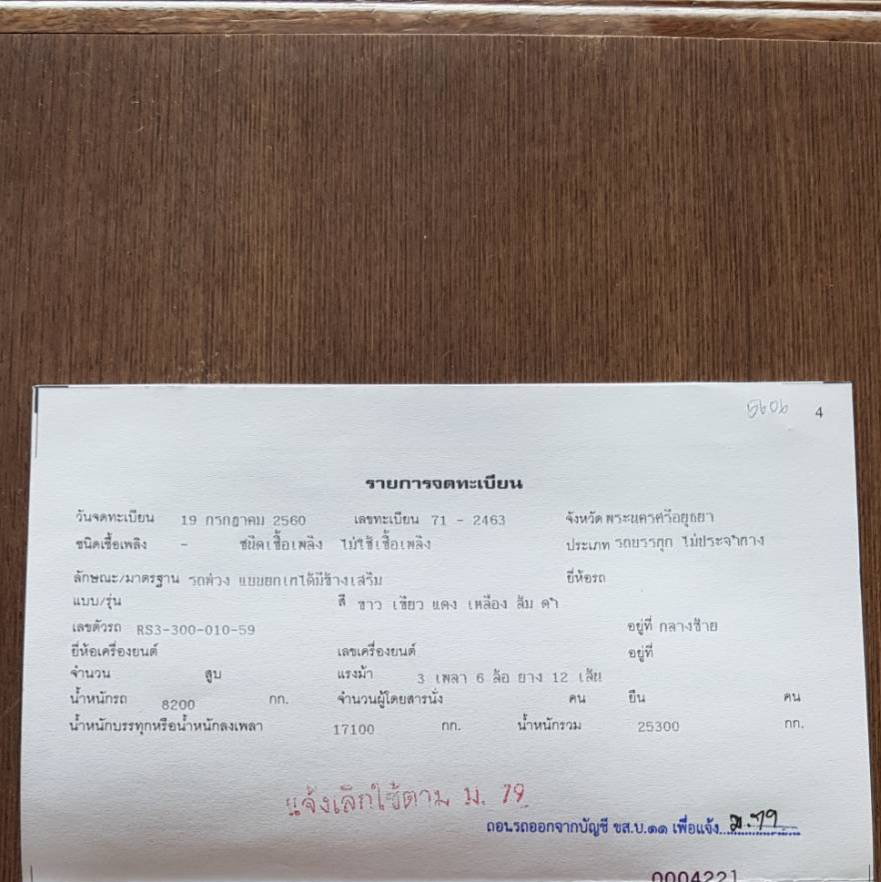 5606 4
รายการจดทะเบียน
วันจดทะเบียน 19 กรกฎาคม 2560 เลขทะเบียน 71 - 2463 จังหวัด พระนครศรีอยุธยา
ชนิดเชื้อเพลิง - ชนิดเชื้อเพลิง ไม่ใช้เชื้อเพลิง ประเภท รถบรรทุก ไม่ประจำทาง
ลักษณะ/มาตรฐาน รถพ่วง แบบยกเทได้มีข้างเสริม ยี่ห้อรถ
แบบ/รุ่น สี ขาว เขียว แดง เหลือง ส้ม ดำ
เลขตัวรถ RS3-300-010-59 อยู่ที่ กลางซ้าย
ยี่ห้อเครื่องยนต์ เลขเครื่องยนต์ อยู่ที่
จำนวน สูบ แรงม้า 3 เพลา 6 ล้อ ยาง 12 เส้น
น้ำหนักรถ 8200 กก. จำนวนผู้โดยสารนั่ง คน ยืน คน
น้ำหนักบรรทุกหรือน้ำหนักลงเพลา 17100 กก. น้ำหนักรวม 25300 กก.
แจ้งเลิกใช้ตาม ม. 79
ถอนรถออกจากบัญชี ขส.บ.๑๑ เพื่อแจ้ง ม.79
0004221